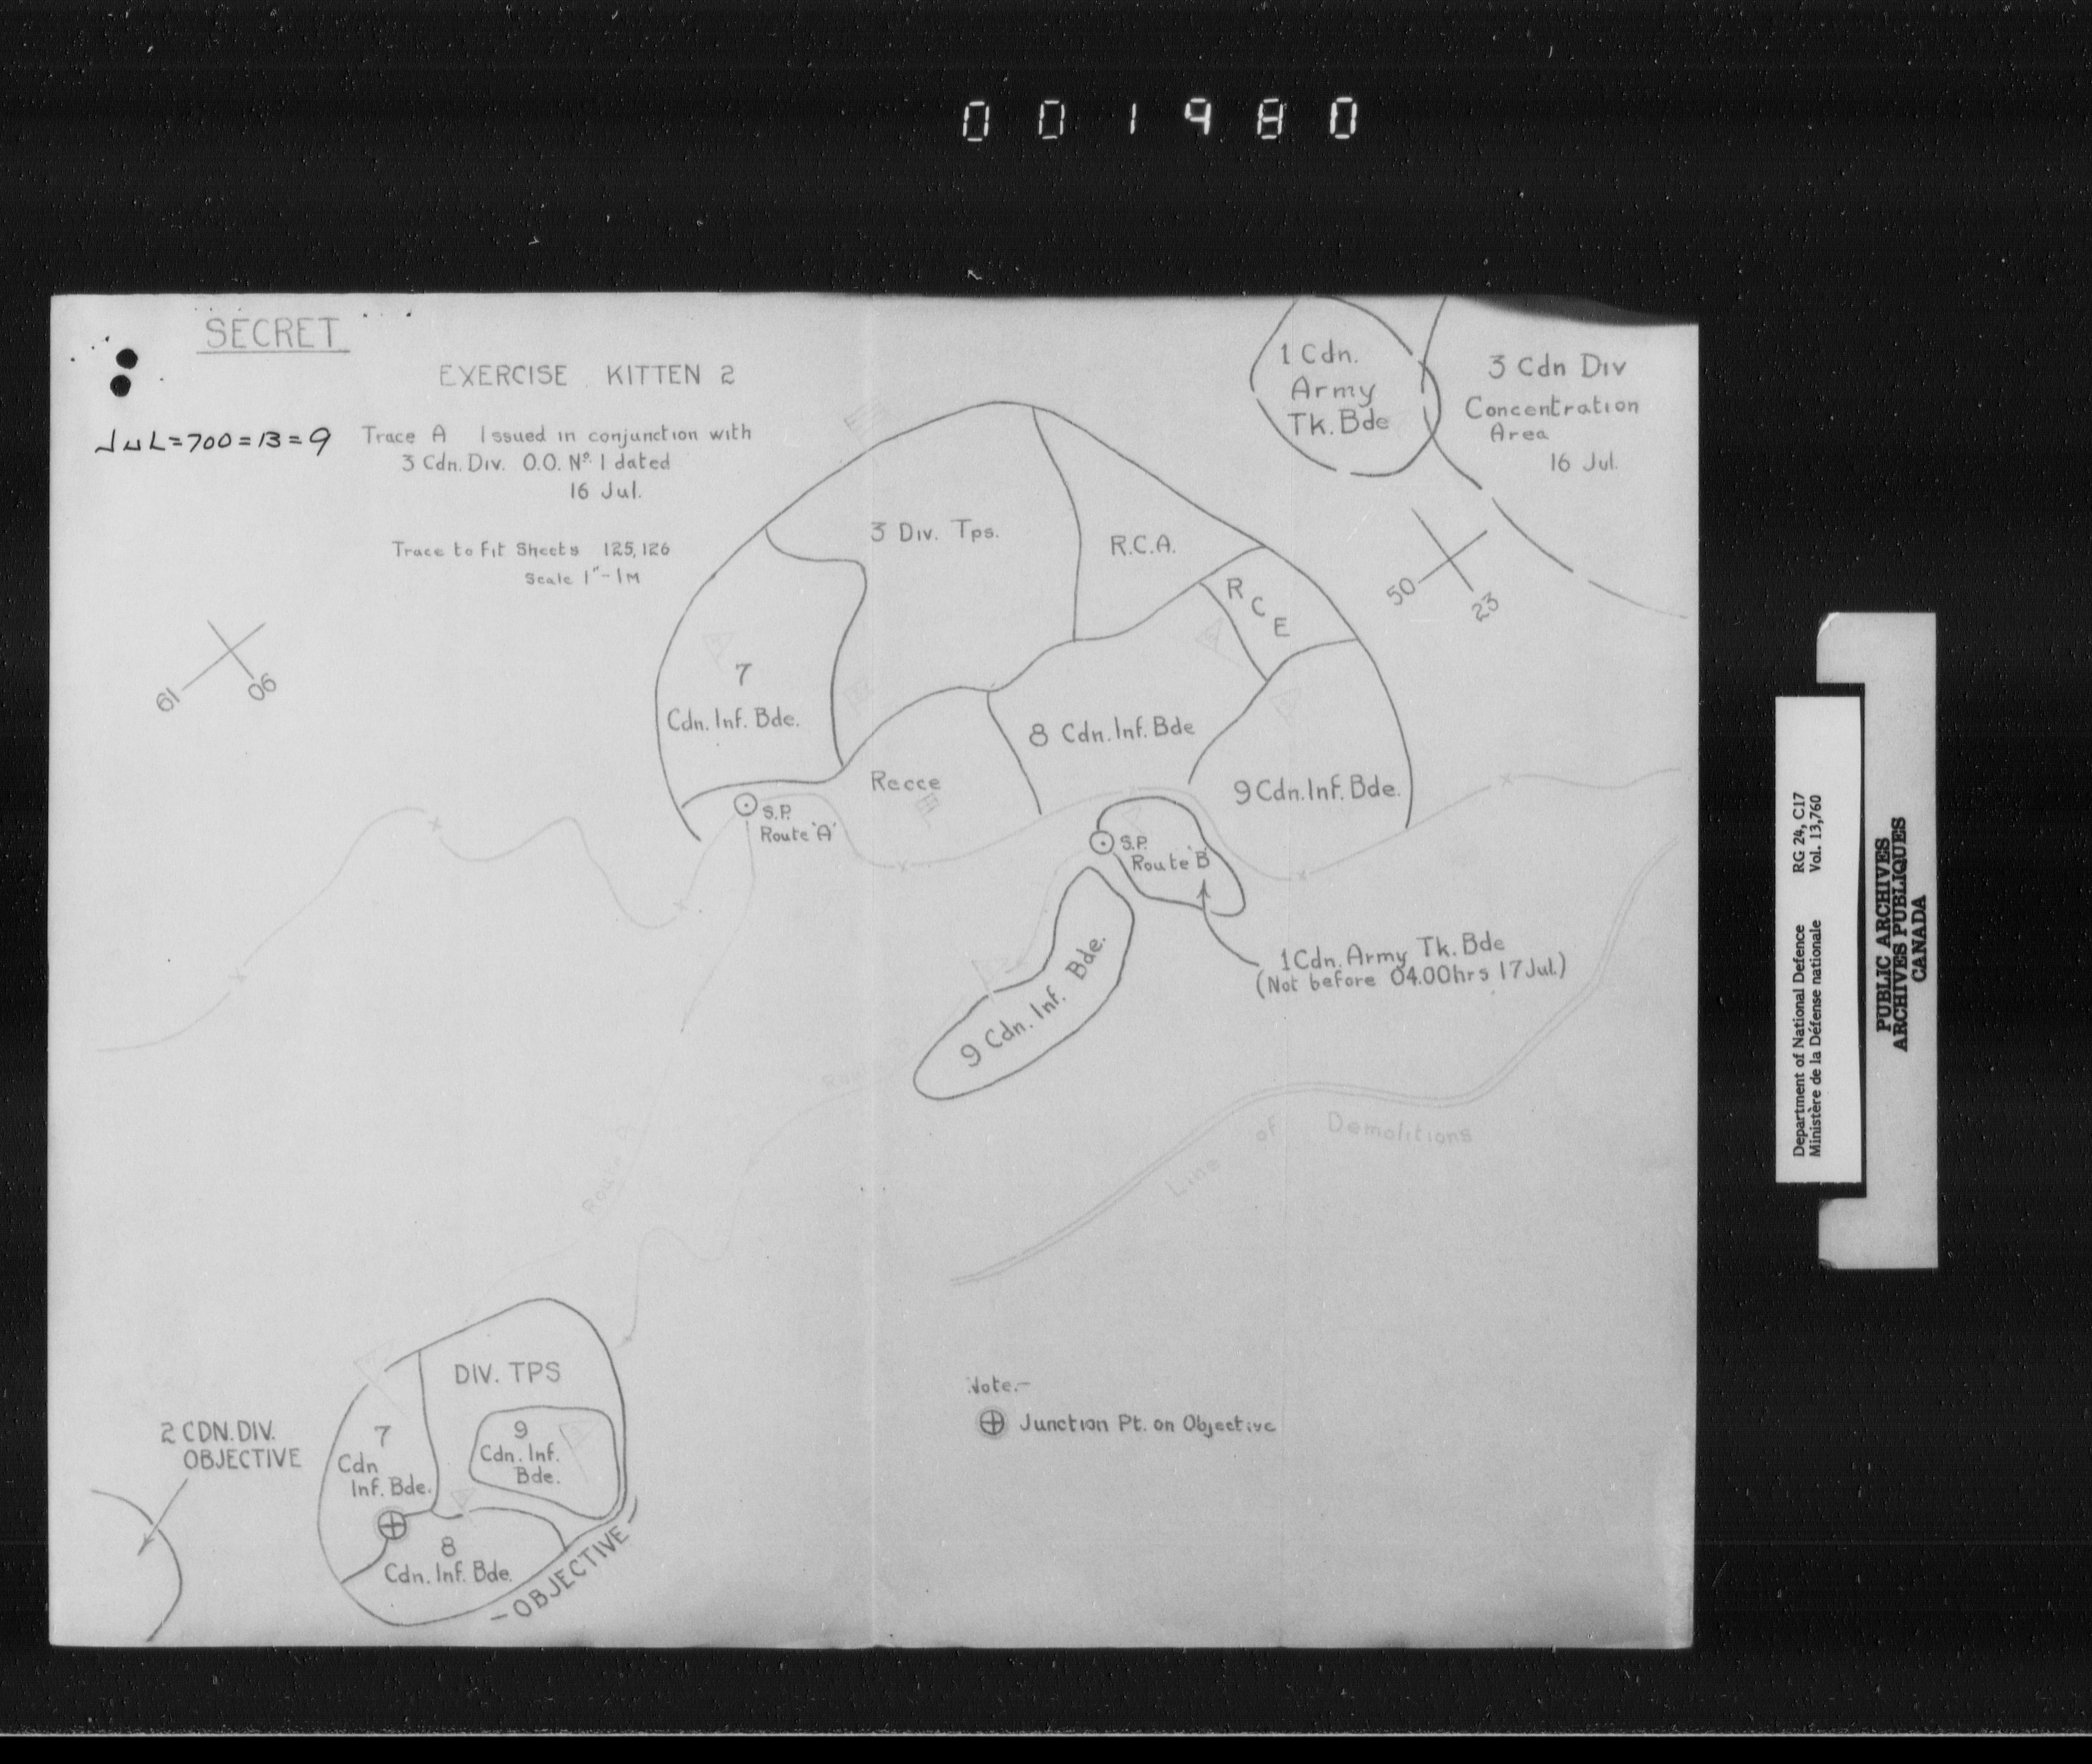 001980
SECRET
EXERCISE KITTEN 2
JUL=700=13=9
Trace A Issued in conjunction with
3 Cdn. Div. O.O. Nº. 1 dated
16 Jul.
Trace to Fit Sheets 125,126
Scale 1"-1M
1 Cdn.
Army
Tk. Bde
3 Cdn Div
Concentration
Area
16 Jul.
50
23
61
06
3 Div. Tps.
R.C.A.
R
C
E
7
Cdn. Inf. Bde.
8 Cdn. Inf. Bde
Recce
9 Cdn. Inf. Bde.
S.P.
Route 'A'
S.P.
Route 'B'
9 Cdn. Inf. Bde.
1 Cdn. Army Tk. Bde
(Not before 04.00hrs 17 Jul.)
Route
Line of Demolitions
DIV. TPS
7
Cdn
Inf. Bde.
9
Cdn. Inf.
Bde.
8
Cdn. Inf. Bde.
-OBJECTIVE-
2 CDN. DIV.
OBJECTIVE
Note.-
Junction Pt. on Objective
Department of National Defence RG 24, C17
Ministère de la Défense nationale Vol. 13,760
PUBLIC ARCHIVES
ARCHIVES PUBLIQUES
CANADA